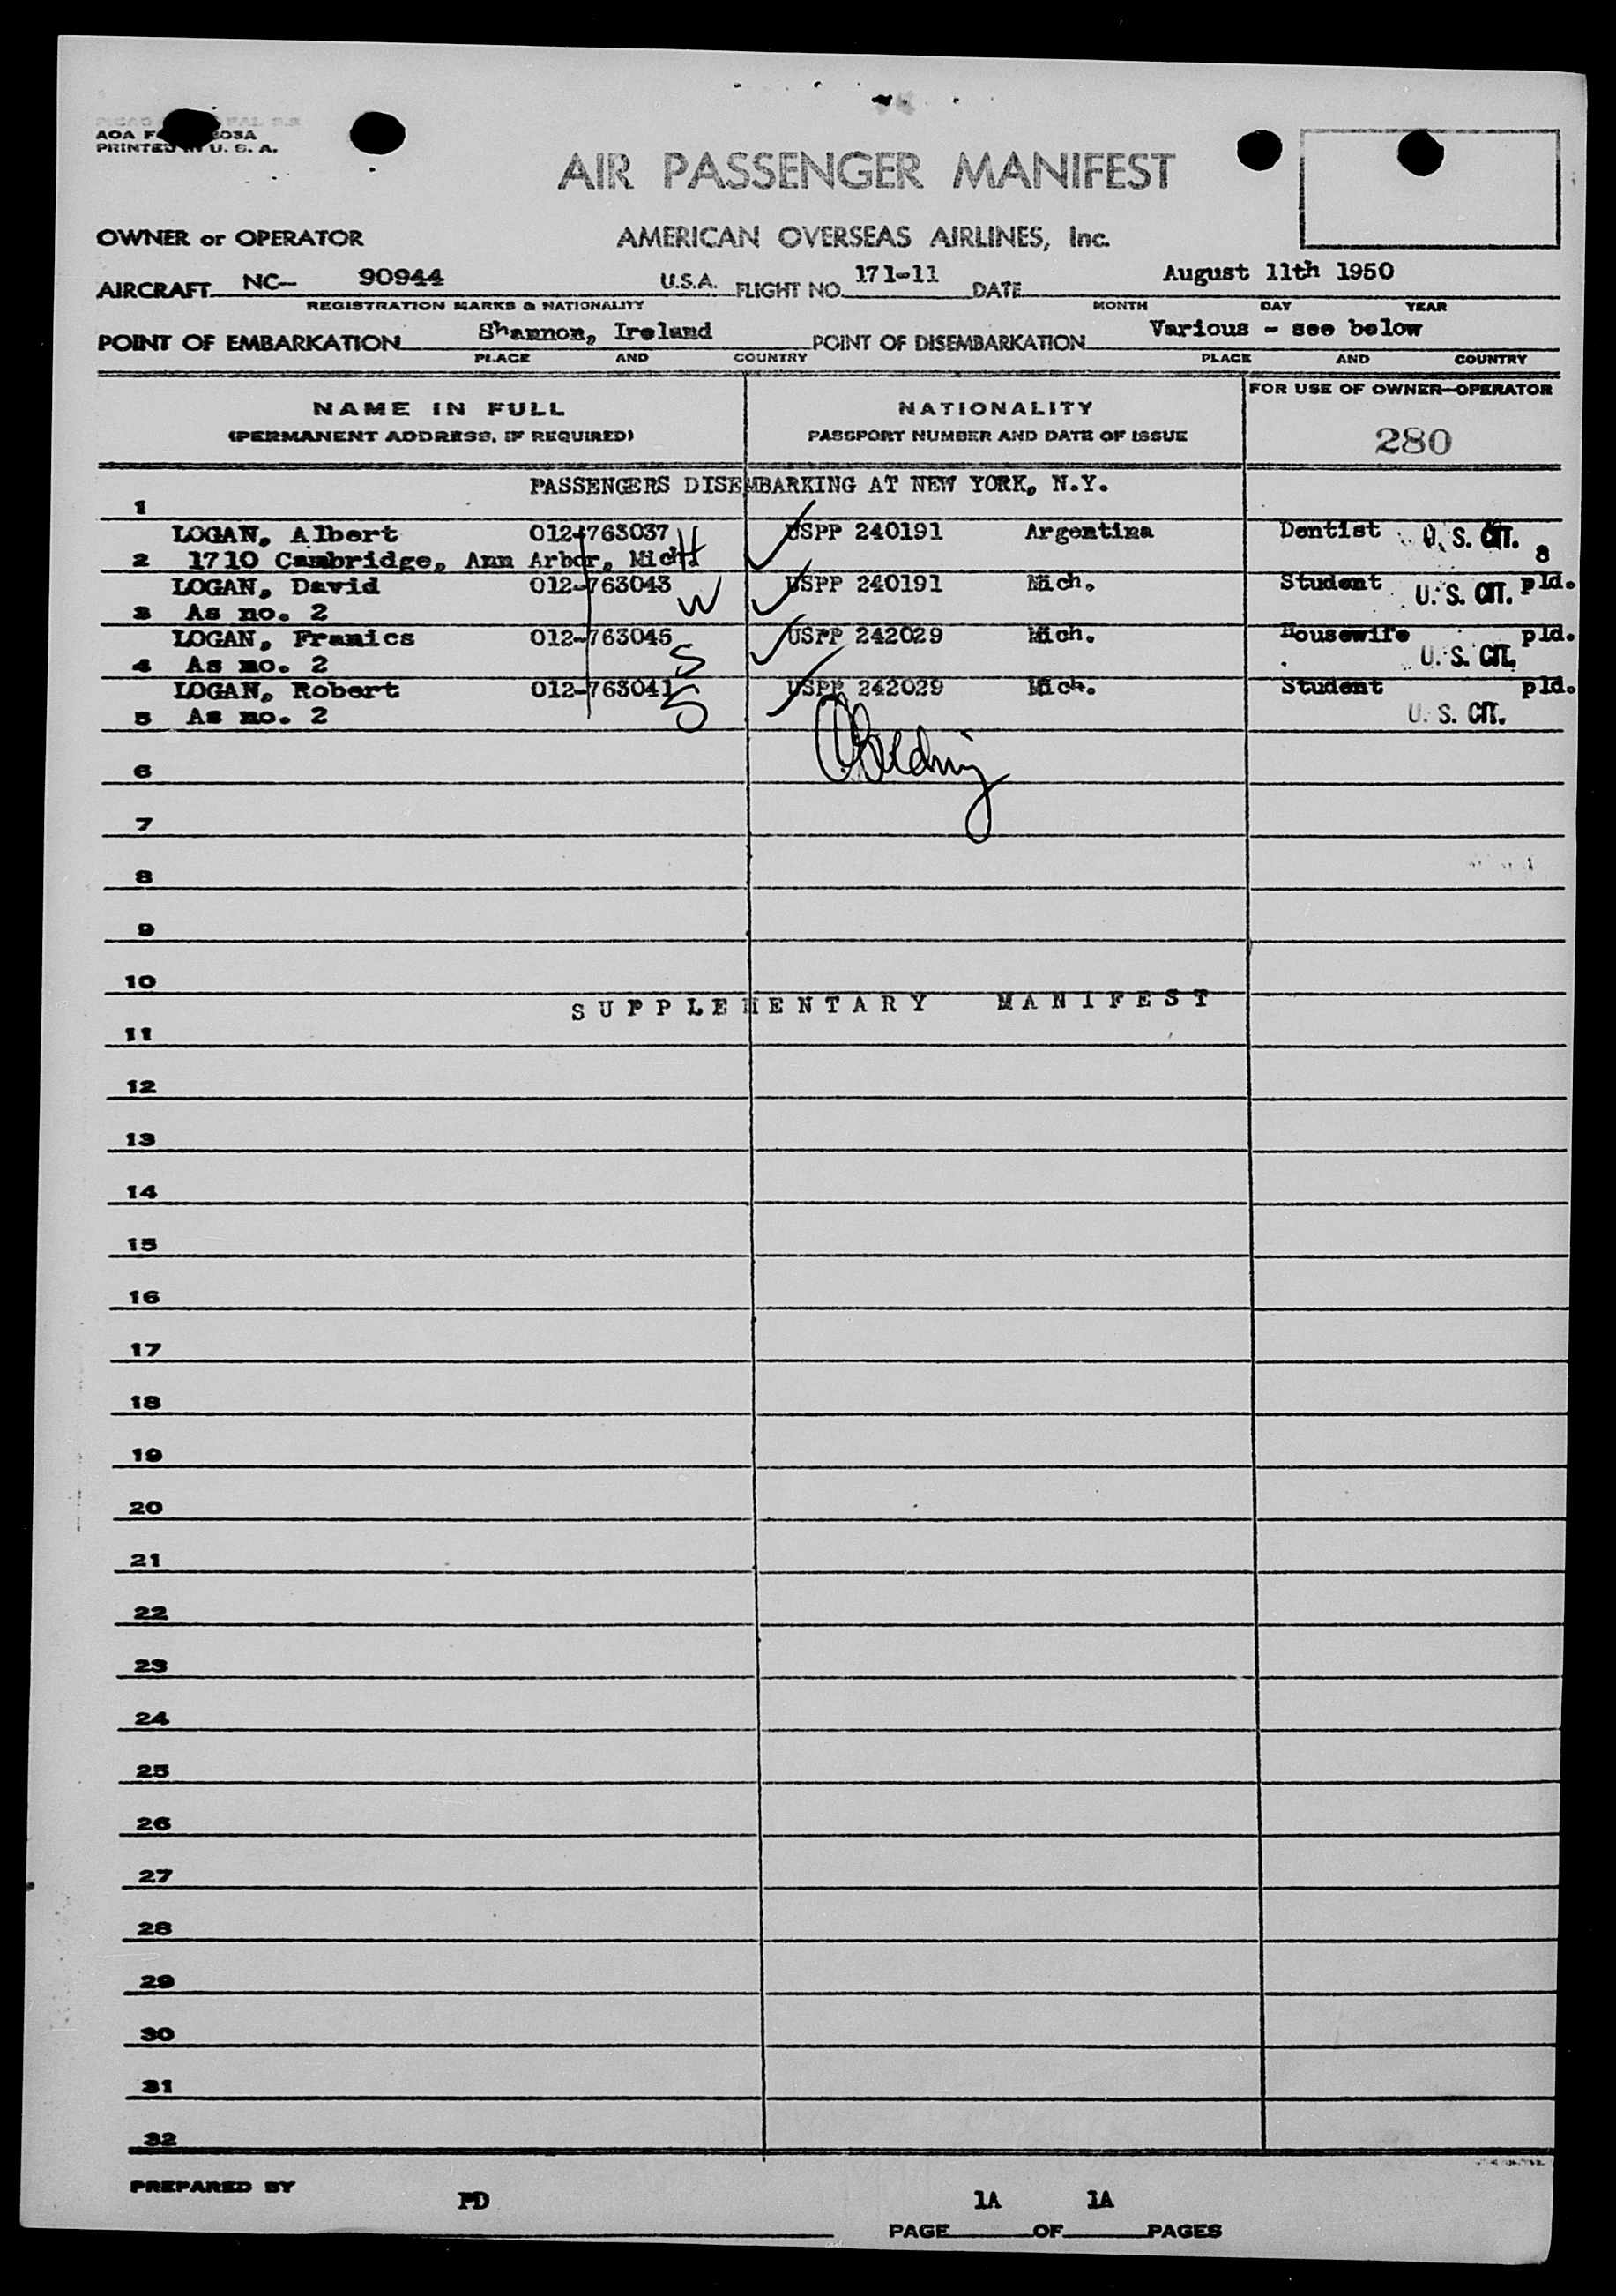 AOA F
PRINTED IN U. S. A.
AIR PASSENGER MANIFEST
OWNER or OPERATOR AMERICAN OVERSEAS AIRLINES, Inc.
AIRCRAFT NC- 90944 U.S.A. FLIGHT NO. 171-11 DATE August 11th 1950
REGISTRATION MARKS & NATIONALITY MONTH DAY YEAR
POINT OF EMBARKATION Shannon, Ireland POINT OF DISEMBARKATION Various - see below
PLACE AND COUNTRY PLACE AND COUNTRY
NAME IN FULL NATIONALITY FOR USE OF OWNER-OPERATOR
(PERMANENT ADDRESS, IF REQUIRED) PASSPORT NUMBER AND DATE OF ISSUE 280
PASSENGERS DISEMBARKING AT NEW YORK, N.Y.
1
LOGAN, Albert 012-763037 USPP 240191 Argentina Dentist U. S. CIT.
2 1710 Cambridge, Ann Arbor, Mich H 8
LOGAN, David 012-763043 W USPP 240191 Mich. Student U. S. CIT. pld.
3 As no. 2
LOGAN, Franics 012-763045 USPP 242029 Mich. Housewife pld.
4 As no. 2 S U. S. CIT.
LOGAN, Robert 012-763041 USPP 242029 Mich. Student pld.
5 As no. 2 S U. S. CIT.
6
7
8
9
10
SUPPLEMENTARY MANIFEST
11
12
13
14
15
16
17
18
19
20
21
22
23
24
25
26
27
28
29
30
31
32
PREPARED BY PD 1A 1A
PAGE OF PAGES